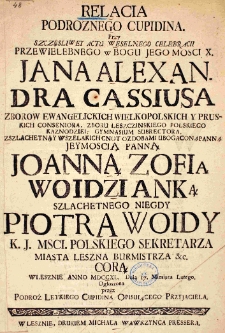 48
RELACIA
PODROZNEGO CUPIDINA,
PRZY
SZCZĘSLIWEY ACTU WESELNEGO CELEBRACII
PRZEWIELEBNEGO w BOGU JEGO MOSCI X.
JANA ALEXAN-
DRA CASSIUSA
ZBOROW EWANGELICKICH WIELKOPOLSKICH Y PRUS-
KICH CONSENIORA, ZBORU LESZCZINSKIEGO POLSKIEGO
KAZNODZIEI; GYMNASIUM SUBRECTORA,
Z SZLACHETNĄ Y WSZELAKICH CNOT OZDOBAMI UBOGACONĄ PANNĄ
JEYMOSCIĄ PANNĄ,
JOANNĄ ZOFIĄ
WOIDZIANKĄ
SZLACHETNEGO NIEGDY
PIOTRA WOIDY
K. J. MSCI. POLSKIEGO SEKRETARZA
MIASTA LESZNA BURMISTRZA &c.
CORĄ
W LESZNIE ANNO MDCCXL. Dniá Miesiąca Lutego,
Ogłoszona
przez
PODROŻ LETKIEGO CUPIDINA OPISUIĄCEGO PRZYJACIELA.
W LESZNIE, DRUKIEM MICHAŁA WAWRZYNCA PRESSERA.